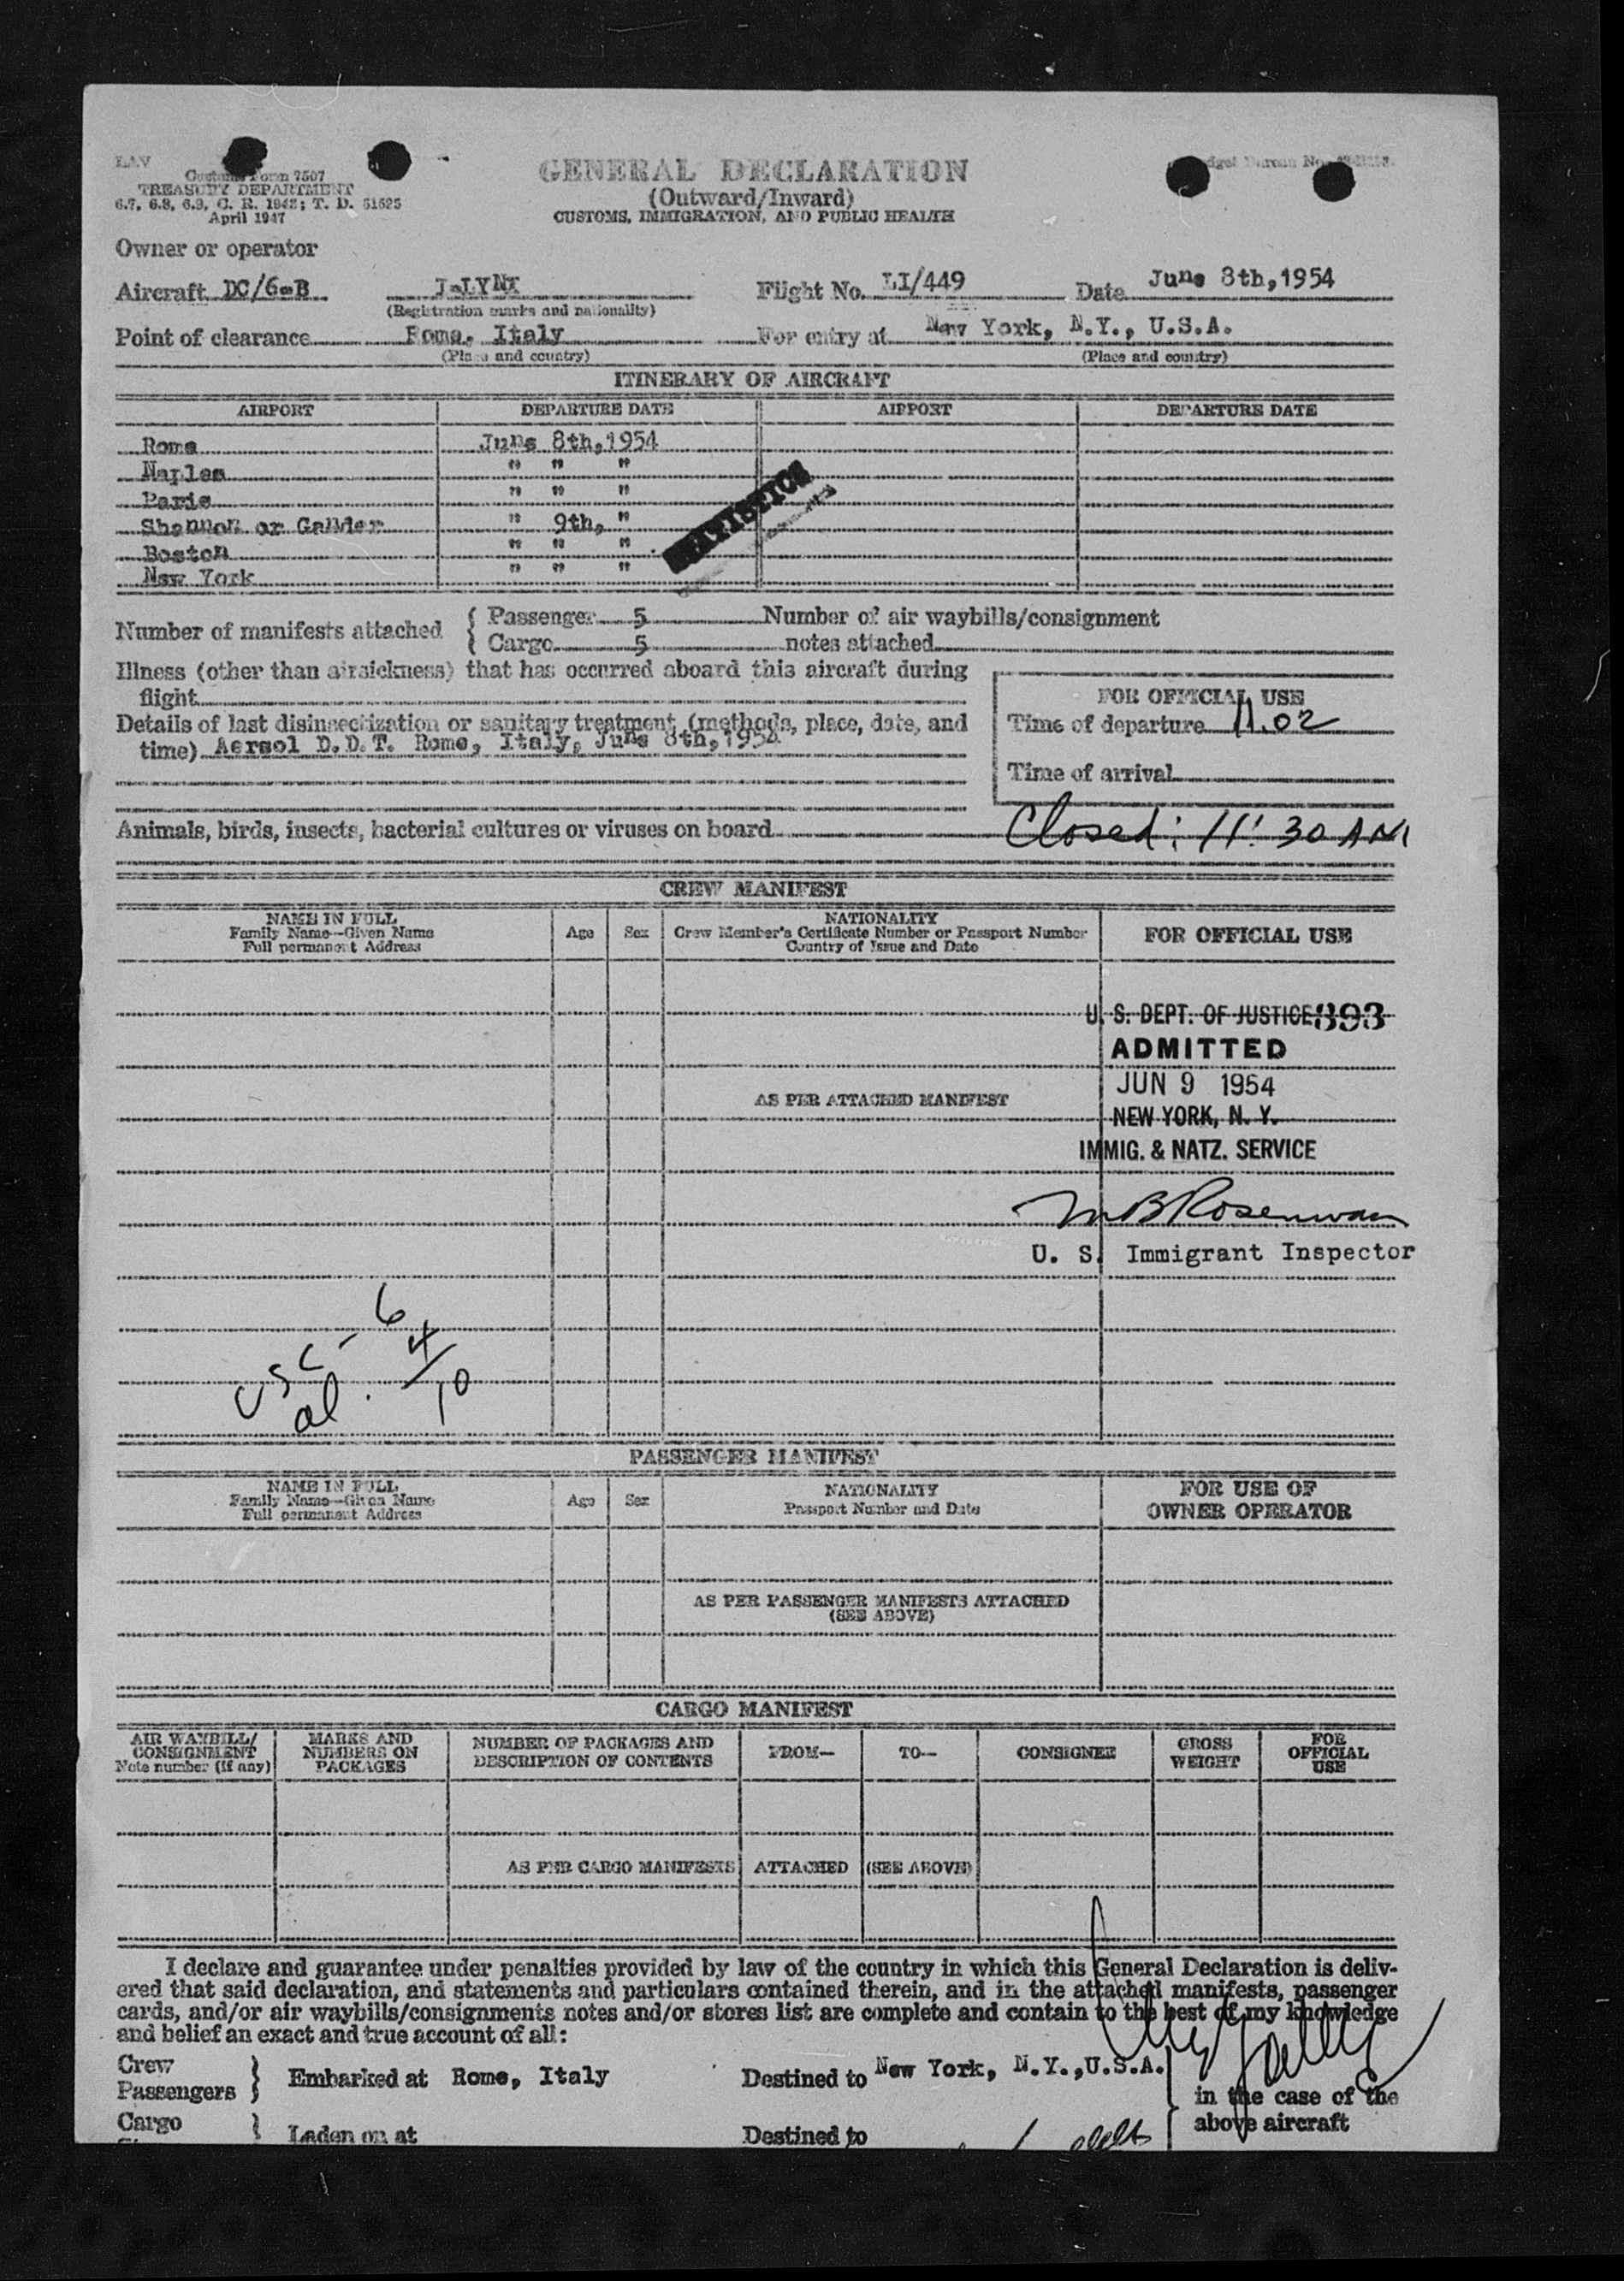 LAV
Customs Form 7507
TREASURY DEPARTMENT
6.7, 6.8, 6.9, C. R. 1943; T. D. 51625
April 1947
GENERAL DECLARATION
(Outward/Inward)
CUSTOMS, IMMIGRATION, AND PUBLIC HEALTH
Budget Bureau No.
Owner or operator
Aircraft DC/6-B I-LYNX Flight No. LI/449 Date June 8th,1954
(Registration marks and nationality)
Point of clearance Rome, Italy For entry at New York, N.Y., U.S.A.
(Place and country) (Place and country)
ITINERARY OF AIRCRAFT
AIRPORT DEPARTURE DATE AIRPORT DEPARTURE DATE
Rome June 8th,1954
Naples " " "
Paris " " "
Shannon or Gander " 9th, "
Boston " " "
New York " " "
STATISTICS
Number of manifests attached { Passenger 5 Number of air waybills/consignment
Cargo 5 notes attached
Illness (other than airsickness) that has occurred aboard this aircraft during
flight
FOR OFFICIAL USE
Details of last disinsectization or sanitary treatment (methods, place, date, and
time) Aersol D.D.T. Rome, Italy, June 8th,1954
Time of departure 11.02
Time of arrival
Animals, birds, insects, bacterial cultures or viruses on board
Closed: 11:30 AM
CREW MANIFEST
NAME IN FULL
Family Name—Given Name
Full permanent Address
Age Sex
NATIONALITY
Crew Member's Certificate Number or Passport Number
Country of Issue and Date
FOR OFFICIAL USE
U. S. DEPT. OF JUSTICE 393
ADMITTED
JUN 9 1954
AS PER ATTACHED MANIFEST
NEW YORK, N. Y.
IMMIG. & NATZ. SERVICE
U. S. Immigrant Inspector
usc - 6
al. 4
10
PASSENGER MANIFEST
NAME IN FULL
Family Name—Given Name
Full permanent Address
Age Sex
NATIONALITY
Passport Number and Date
FOR USE OF
OWNER OPERATOR
AS PER PASSENGER MANIFESTS ATTACHED
(SEE ABOVE)
CARGO MANIFEST
AIR WAYBILL/
CONSIGNMENT
Note number (if any)
MARKS AND
NUMBERS ON
PACKAGES
NUMBER OF PACKAGES AND
DESCRIPTION OF CONTENTS
FROM—
TO—
CONSIGNEE
GROSS
WEIGHT
FOR
OFFICIAL
USE
AS PER CARGO MANIFESTS ATTACHED (SEE ABOVE)
I declare and guarantee under penalties provided by law of the country in which this General Declaration is deliv-
ered that said declaration, and statements and particulars contained therein, and in the attached manifests, passenger
cards, and/or air waybills/consignments notes and/or stores list are complete and contain to the best of my knowledge
and belief an exact and true account of all:
Crew
Passengers } Embarked at Rome, Italy Destined to New York, N.Y.,U.S.A.
in the case of the
above aircraft
Cargo } Laden on at Destined to